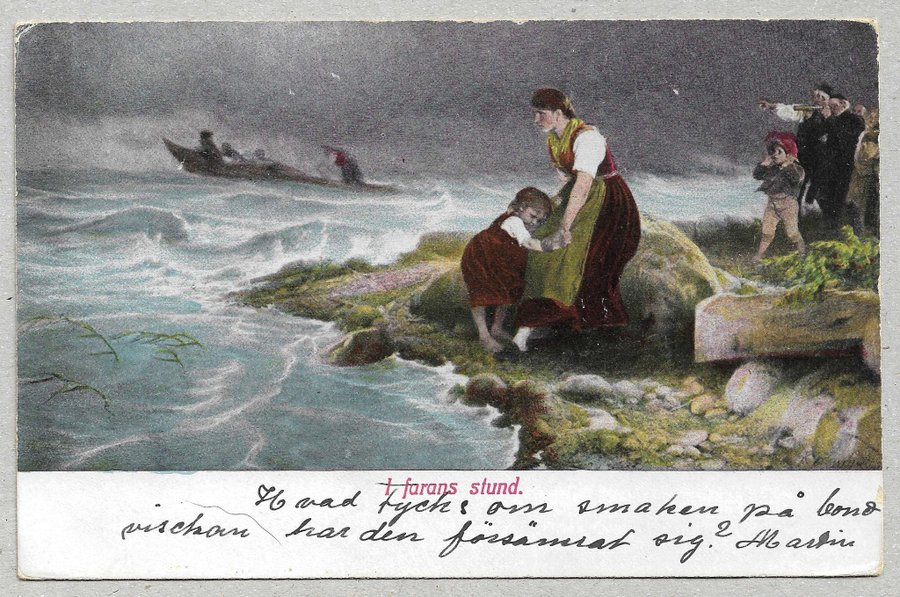 I farans stund.
Hvad tycks om smaken på bond
vischan har den försämrat sig? Martin